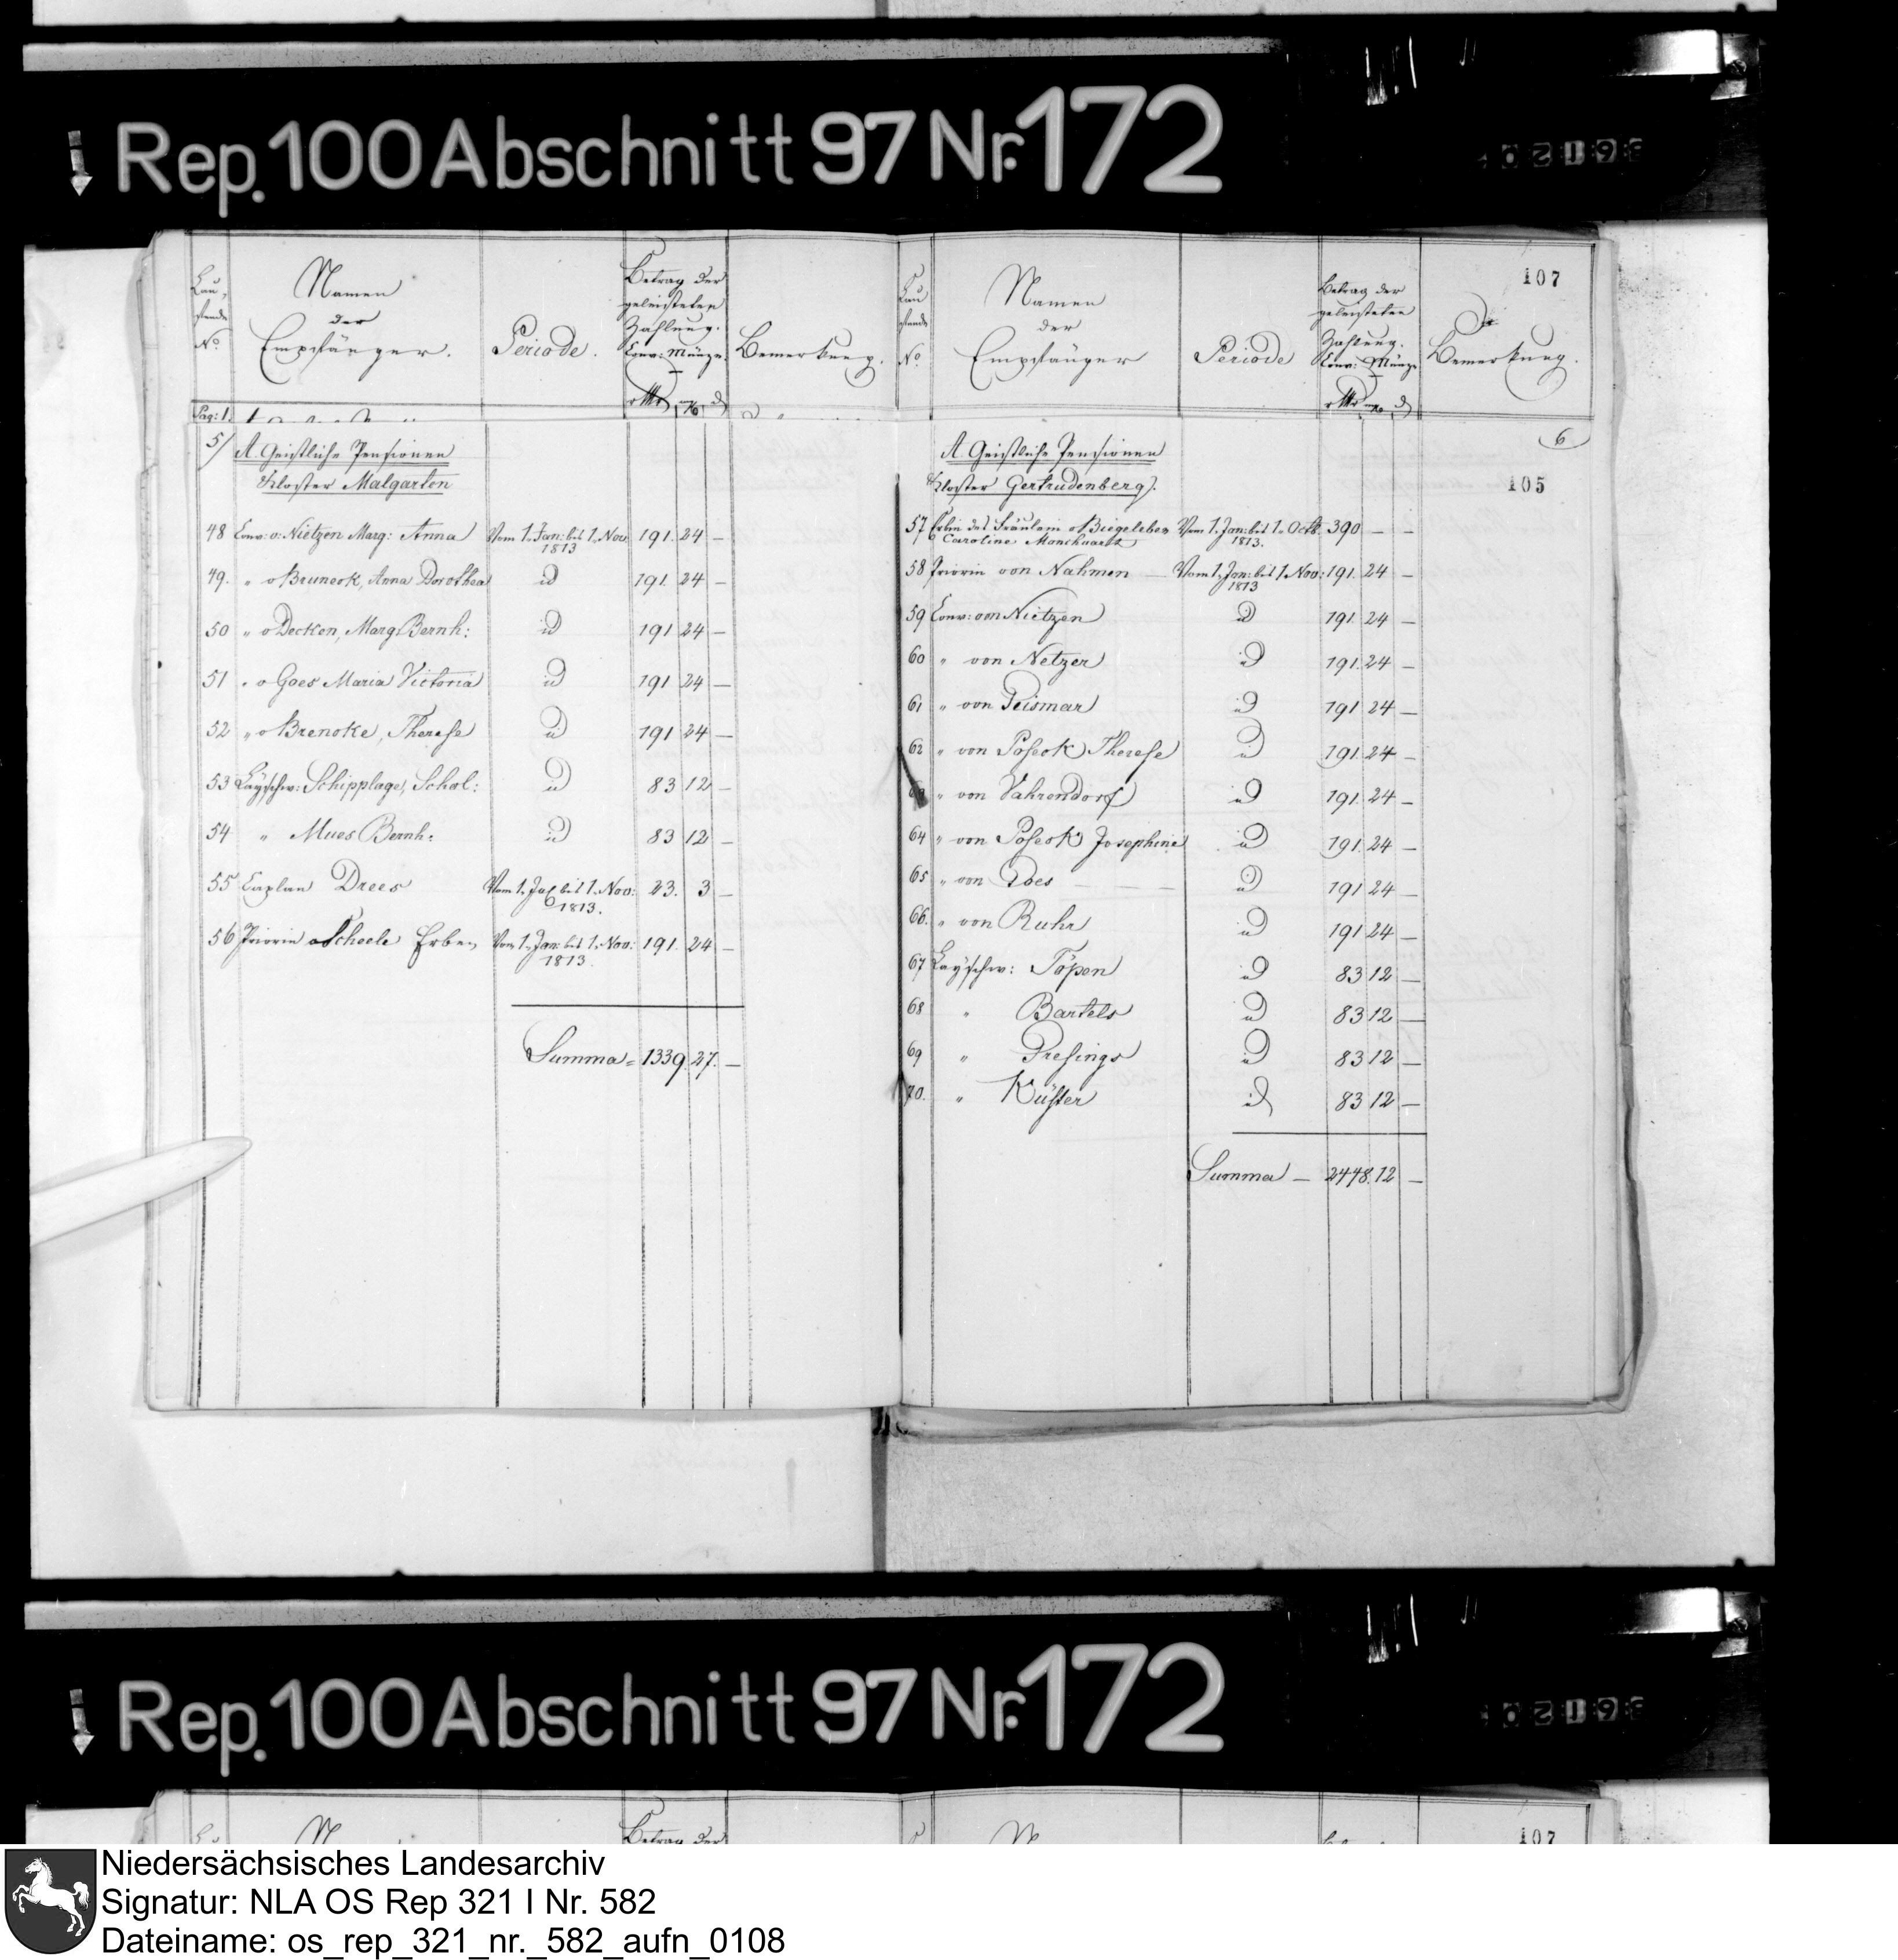 Rep. 100 Abschnitt 97 Nr. 172
107
Lau,
fende
No.
Namen
der
Empfänger.
Periode.
Betrag der
geleisteten
Zahlung.
Conv: Münze.
Bemerkung.
Lau
fende
No
Namen
der
Empfänger
Periode
Betrag der
geleisteten
Zahlung.
Conv: Münze
Bemerkung.
Pag: 1.
5/ A. Geistliche Pensionen
Kloster Malgarten
48 Conv: v: Nietzen Marg: Anna Vom 1. Jan: bis 1. Nov 1813 191. 24 –
49. " v Bruneck, Anna Dorothea id 191. 24 –
50 " v Decken, Marg. Bernh: id 191 24 –
51 " v Goes Maria Victoria id 191 24 –
52 " v Brencke, Therese id 191 24 –
53 Layschw: Schipplage, Schol: id 83 12 –
54 " Mues Bernh: id 83 12 –
55 Caplan Drees Vom 1. Jul bis 1. Nov: 1813. 23. 3 –
56 Priorin v Scheele Erben Vom 1. Jan: bis 1. Nov: 1813. 191. 24 –
Summa = 1339. 27. –
6
105
A. Geistliche Pensionen
Kloster Gertrudenberg.
57 Erbin des Fräulein v Biegeleben Vom 1. Jan: bis 1. Octb. 390 – –
Caroline 1813.
58 Priorin von Nahmen – Vom 1. Jan: bis 1. Nov: 1813 191. 24 –
59 Conv: von Nietzen id 191. 24 –
60 " von Netzer id 191. 24 –
61 " von Geismar id 191 24 –
62 " von Poseck Therese id 191. 24 –
" von Vahrendorf id 191. 24 –
64 " von Poseck Josephine id 191. 24 –
65 " von Goes id 191 24 –
66. " von Ruhr id 191 24 –
67 Layschw: Töpen id 83 12 –
68 " Bartels id 83 12 –
69 " Gresings id 83 12 –
70. " Küster id 83 12 –
Summa – 2448. 12 –
Rep. 100 Abschnitt 97 Nr. 172
Betrag der
107
Niedersächsisches Landesarchiv
Signatur: NLA OS Rep 321 I Nr. 582
Dateiname: os_rep_321_nr._582_aufn_0108